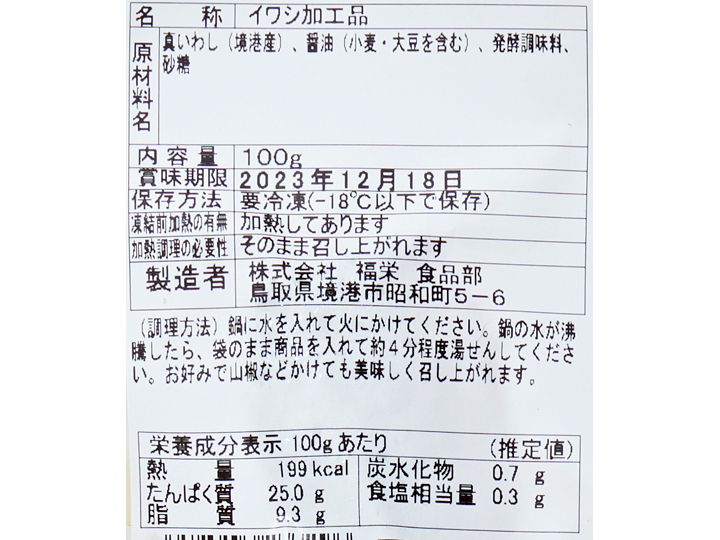 名称 イワシ加工品
原材料名 真いわし（境港産）、醤油（小麦・大豆を含む）、発酵調味料、
砂糖
内容量 100g
賞味期限 2023年12月18日
保存方法 要冷凍(-18℃以下で保存)
凍結前加熱の有無 加熱してあります
加熱調理の必要性 そのまま召し上がれます
製造者 株式会社 福栄 食品部
鳥取県境港市昭和町5-6
（調理方法）鍋に水を入れて火にかけてください。鍋の水が沸
騰したら、袋のまま商品を入れて約4分程度湯せんしてくださ
い。お好みで山椒などかけても美味しく召し上がれます。
栄養成分表示 100gあたり (推定値)
熱量 199kcal 炭水化物 0.7 g
たんぱく質 25.0 g 食塩相当量 0.3 g
脂質 9.3 g